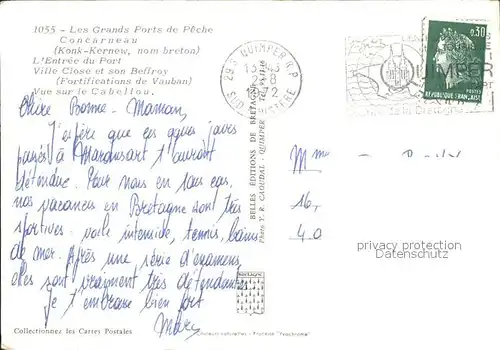 1055 - Les Grands Ports de Pêche
Concarneau
(Konk-Kernew, nom breton)
L'Entrée du Port
Ville Close et son Beffroy
(Fortifications de Vauban)
Vue sur le Cabellou.
Chère Bonne-Maman,
J'espère que ces qques jours
passés à t'auront
détendue. Pour nous en tous cas,
nos vacances en Bretagne sont très
sportives : voile intensive, tennis, bains
de mer. Après une série d'examens,
elles sont vraiment très détendantes
je t'embrasse bien fort
Marc
Collectionnez les Cartes Postales
BELLES ÉDITIONS DE BRETAGNE
Photo Y. R. CAOUDAL - QUIMPER
QUIMPER R.P.
13H45
2-8
1972
SUD FINISTERE
QUIMPER
de la Bretagne
0,30
POSTES
REPUBLIQUE FRANÇAISE
Mme
16,
40
privacy protection
AnsichtskartenCenter
Couleurs naturelles